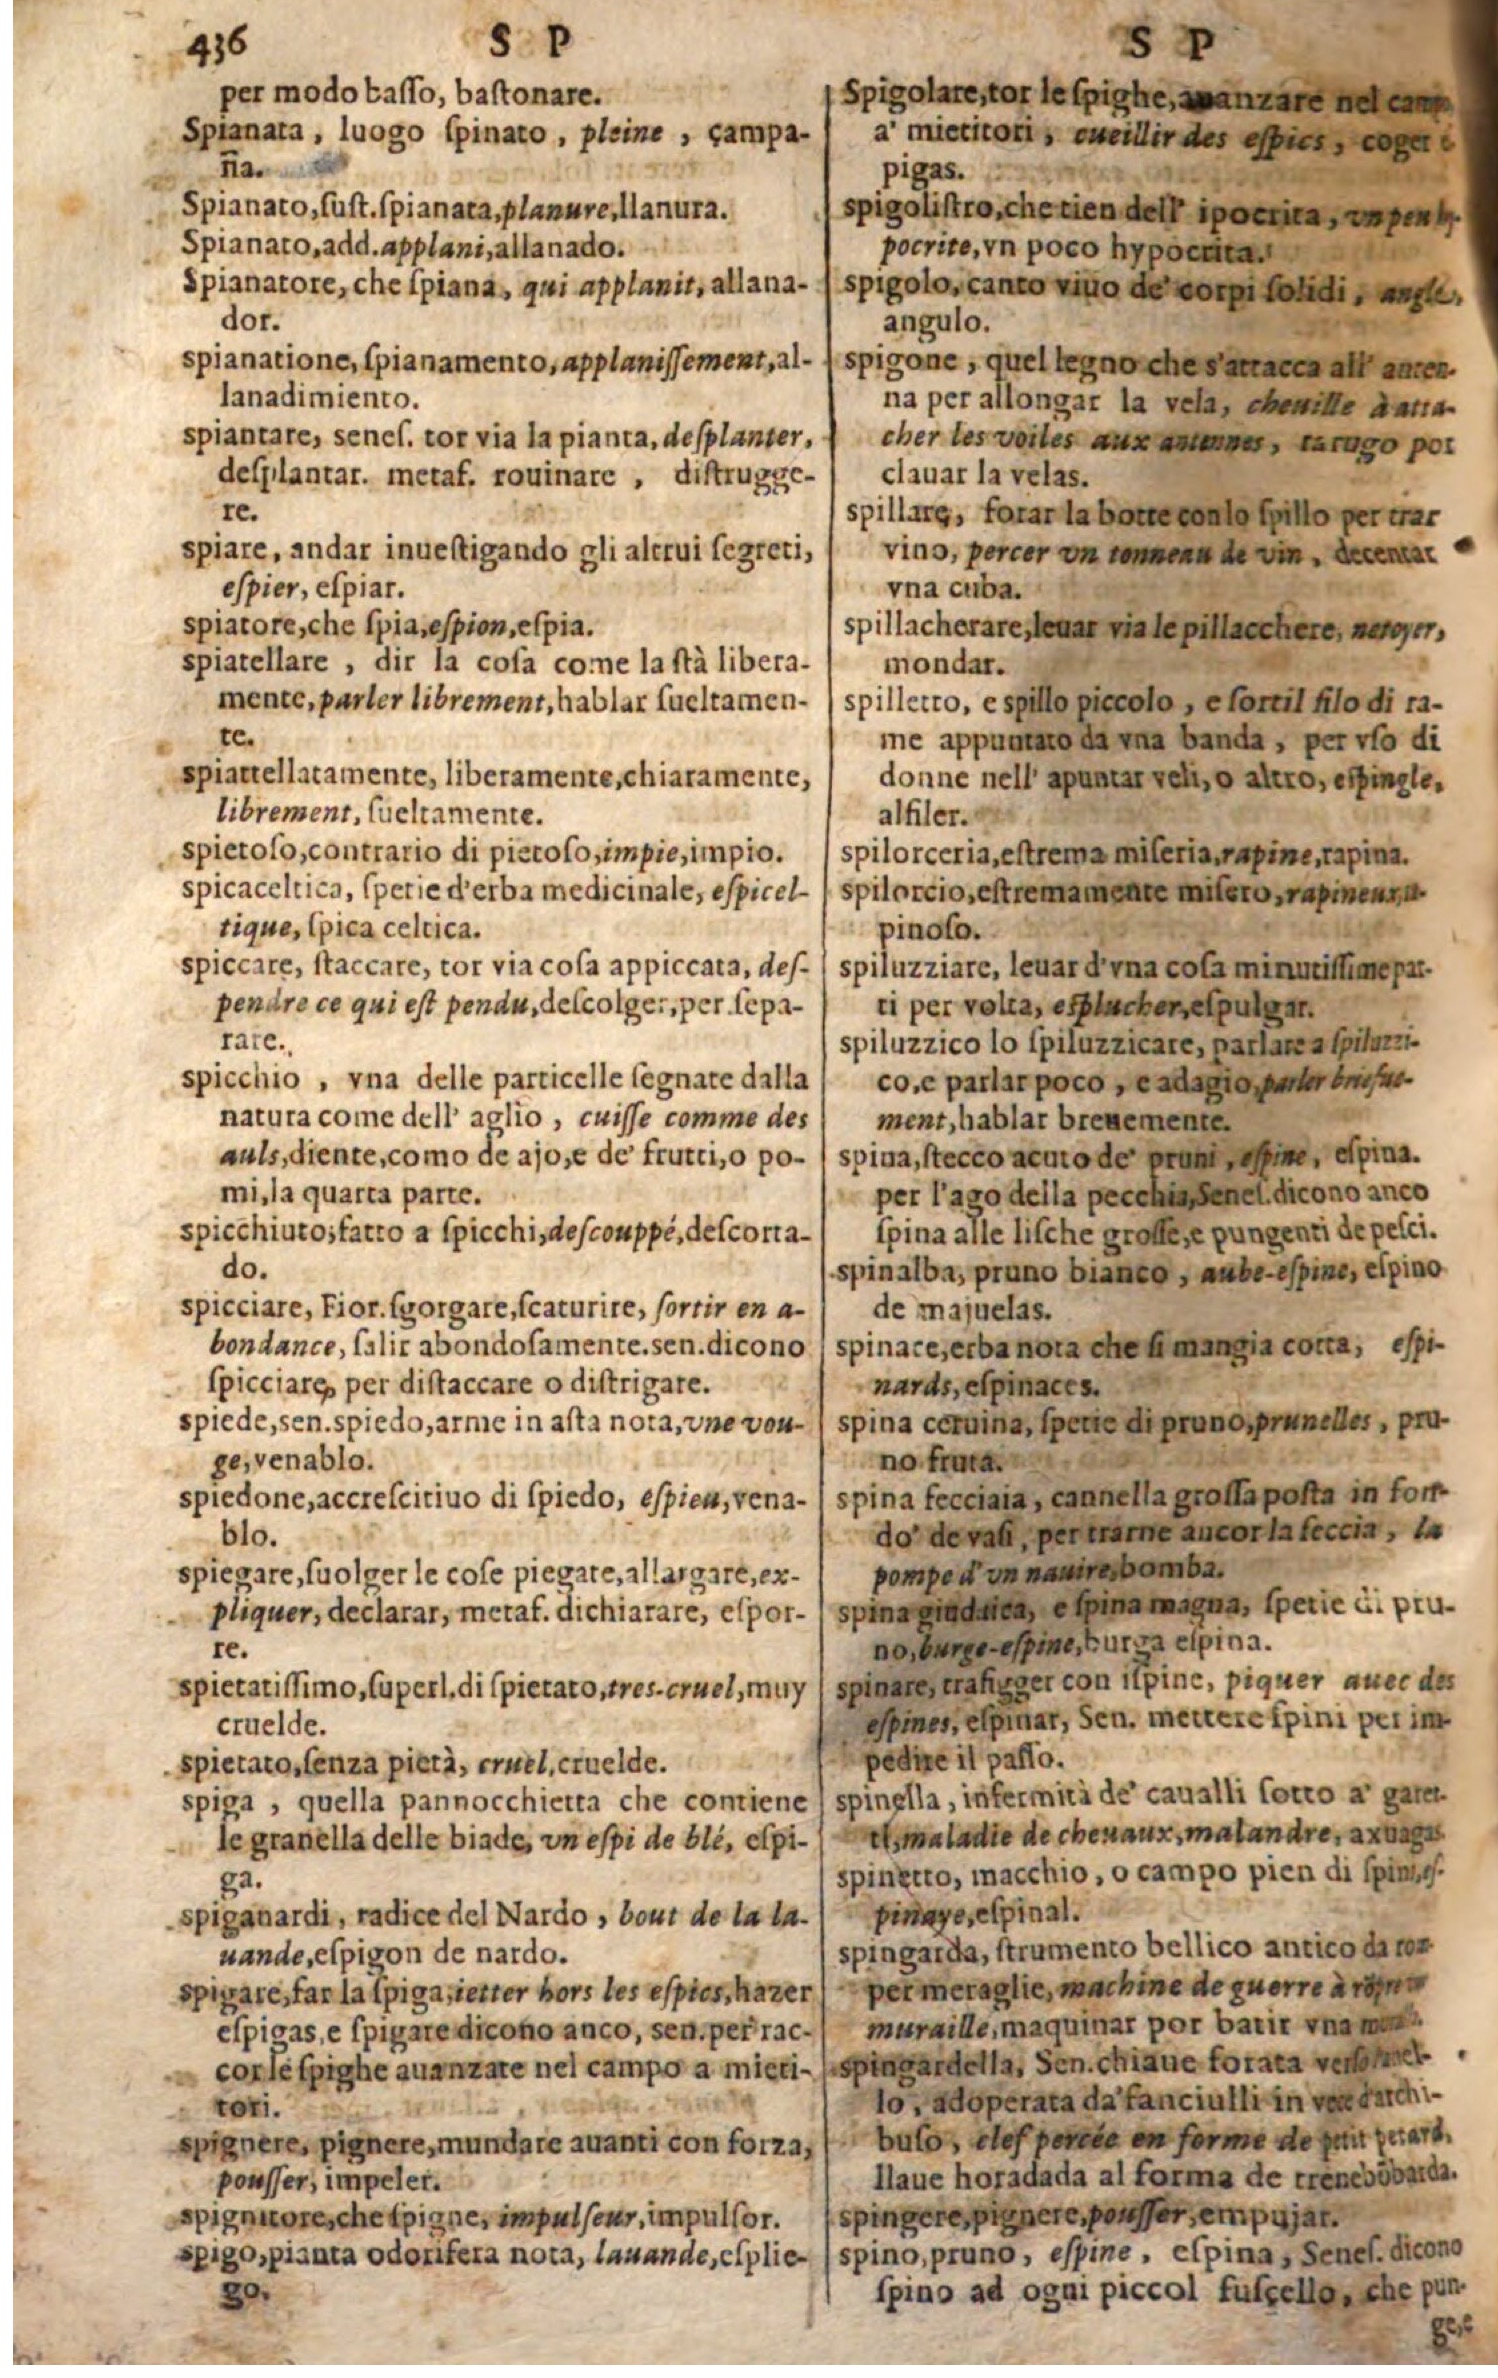 436
S P
S P
per modo baſſo, baſtonare.
Spianata, luogo ſpinato, pleine, çampa-
ña.
Spianato,ſuſt.ſpianata,planure,llanura.
Spianato,add.applani,allanado.
Spianatore, che ſpiana, qui applanit, allana-
dor.
spianatione, ſpianamento, applaniſſement, al-
lanadimiento.
spiantare, seneſ. tor via la pianta, deſplanter,
deſplantar. metaf. rouinare, diſtrugge-
re.
spiare, andar inueſtigando gli altrui ſegreti,
eſpier, eſpiar.
spiatore,che ſpia,eſpion,eſpia.
spiatellare, dir la coſa come la ſtà libera-
mente, parler librement, hablar ſueltamen-
te.
spiattellatamente, liberamente,chiaramente,
librement, ſueltamente.
spietoſo,contrario di pietoſo,impie,impio.
spicaceltica, ſpetie d'erba medicinale, eſpicel-
tique, ſpica celtica.
spiccare, ſtaccare, tor via coſa appiccata, deſ-
pendre ce qui eſt pendu,deſcolger,per ſepa-
rare.
spicchio, vna delle particelle ſegnate dalla
natura come dell' aglio, cuiſſe comme des
auls,diente,como de ajo,e de' frutti,o po-
mi,la quarta parte.
spicchiuto,fatto a ſpicchi,deſcouppé,deſcorta-
do.
spicciare, Fior.ſgorgare,ſcaturire, ſortir en a-
bondance, ſalir abondoſamente.sen.dicono
ſpicciare, per diſtaccare o diſtrigare.
spiede,sen.spiedo,arme in aſta nota,vne vou-
ge,venablo.
spiedone,accreſcitiuo di ſpiedo, eſpieu,vena-
blo.
spiegare,ſuolger le coſe piegate,allargare,ex-
pliquer, declarar, metaf. dichiarare, eſpor-
re.
spietatiſſimo,ſuperl.di ſpietato,tres-cruel,muy
cruelde.
spietato,ſenza pietà, cruel,cruelde.
spiga, quella pannocchietta che contiene
le granella delle biade, vn eſpi de blé, eſpi-
ga.
spiganardi, radice del Nardo, bout de la la-
uande,eſpigon de nardo.
spigare,far la ſpiga,ietter hors les eſpics,hazer
eſpigas,e ſpigare dicono anco, sen.per rac-
cor le ſpighe auanzate nel campo a mieti-
tori.
spignere, pignere,mundare auanti con forza,
pouſſer, impeler.
spignitore,che ſpigne, impulſeur,impulſor.
spigo,pianta odorifera nota, lauande,eſplie-
go.
Spigolare,tor le ſpighe,auanzare nel
a' mietitori, cueillir des eſpics, coger
pigas.
spigoliſtro,che tien dell' ipocrita, vn peu hy-
pocrite,vn poco hypocrita.
spigolo, canto viuo de' corpi ſolidi, angle,
angulo.
spigone, quel legno che s'attacca all' anten-
na per allongar la vela, cheuille à atta-
cher les voiles aux antennes, tarugo por
clauar la velas.
spillare, forar la botte con lo ſpillo per trar
vino, percer vn tonneau de vin, decentar
vna cuba.
spillacherare,leuar via le pillacchere, netoyer,
mondar.
spilletto, e spillo piccolo, e ſottil filo di ra-
me appuntato da vna banda, per vſo di
donne nell' apuntar veli, o altro, eſpingle,
alfiler.
spilorceria,eſtrema miſeria,rapine,rapina.
spilorcio,eſtremamente miſero,rapineux,ra-
pinoſo.
spiluzziare, leuar d'vna coſa minutiſſime par-
ti per volta, eſplucher,eſpulgar.
spiluzzico lo ſpiluzzicare, parlare a ſpiluzzi-
co,e parlar poco, e adagio,parler briefue-
ment,hablar breuemente.
spina,ſtecco acuto de' pruni, eſpine, eſpina.
per l'ago della pecchia,Seneſ.dicono anco
ſpina alle liſche groſſe,e pungenti de peſci.
spinalba, pruno bianco, aube-eſpine, eſpino
de majuelas.
spinace,erba nota che ſi mangia cotta, eſpi-
nards, eſpinaces.
spina ceruina, ſpetie di pruno,prunelles, pru-
no fruta.
spina fecciaia, cannella groſſa poſta in fon-
do' de vaſi, per trarne ancor la feccia, la
pompe d'vn nauire,bomba.
spina giudaica, e ſpina magna, ſpetie di pru-
no,burge-eſpine,burga eſpina.
spinare, trafigger con iſpine, piquer auec des
eſpines, eſpinar, Sen. mettere ſpini per im-
pedire il paſſo.
spinella, infermità de' caualli ſotto a' garet-
ti,maladie de cheuaux,malandre, axuagas
spinetto, macchio, o campo pien di ſpini,eſ-
pinaye,eſpinal.
spingarda, ſtrumento bellico antico da rom-
per meraglie, machine de guerre à
muraille,maquinar por batir vna
spingardella, Sen.chiaue forata
lo, adoperata da' fanciulli in vece d'archi-
buſo, clef percée en forme de petit petard,
llaue horadada al forma de trenebõbarda.
spingere,pignere,pouſſer,empujar.
spino,pruno, eſpine, eſpina, Seneſ. dicono
ſpino ad ogni piccol fuſcello, che pun-
ge,e